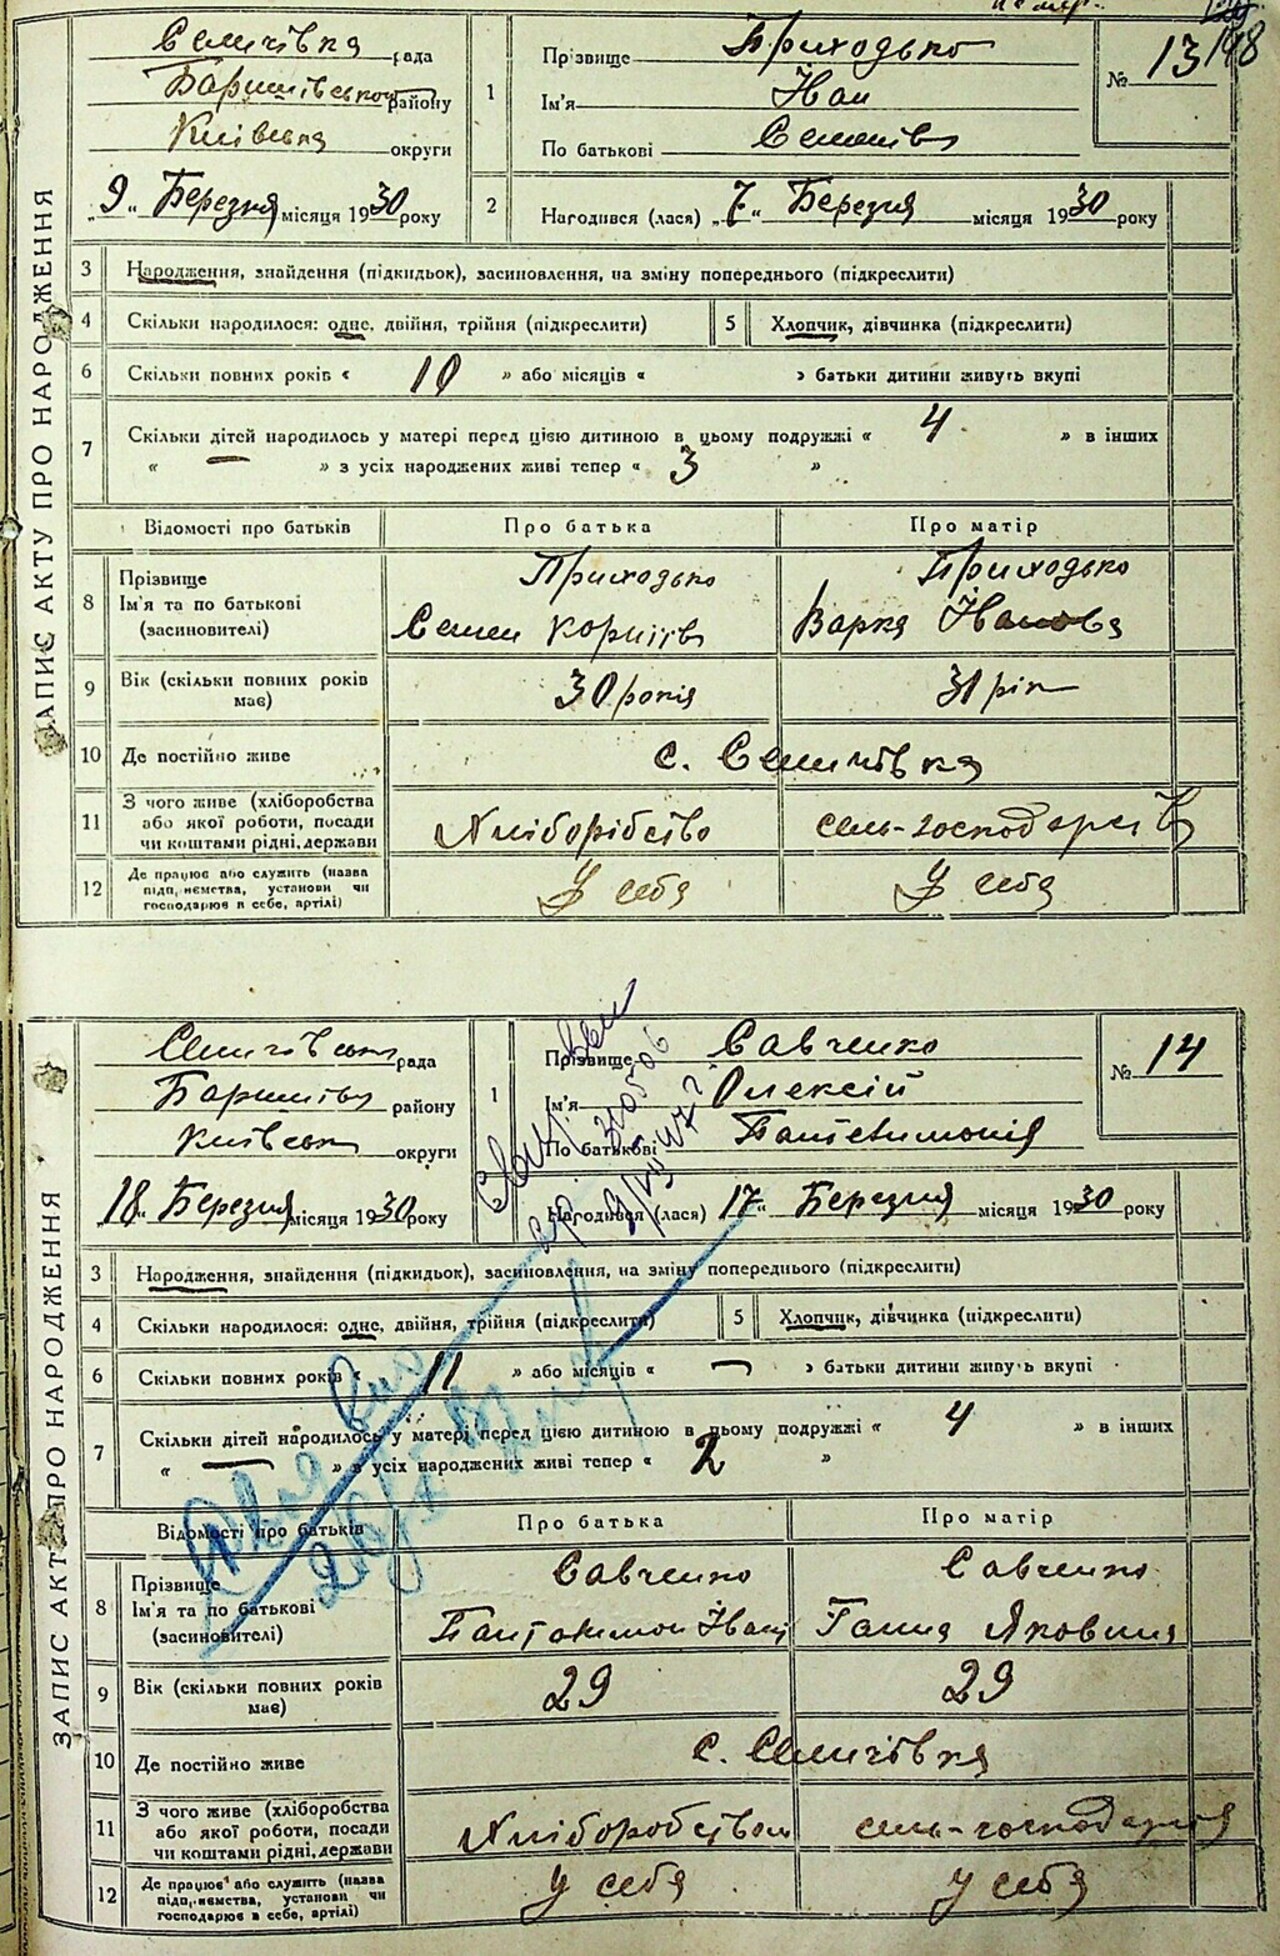 ЗАПИС АКТУ ПРО НАРОДЖЕННЯ
Селичівка рада
Баришівського району
Київська округи
„9“ Березня місяця 1930 року
1
Прізвище Приходько
Ім'я Йван
По батькові Семенів
№ 13
148
2
Народився (лася) „7“ Березня місяця 1930 року
3 Народження, знайдення (підкидьок), засиновлення, на зміну попереднього (підкреслити)
4 Скільки народилося: одне, двійня, трійня (підкреслити) 5 Хлопчик, дівчинка (підкреслити)
6 Скільки повних років « 10 » або місяців « » батьки дитини живуть вкупі
7 Скільки дітей народилось у матері перед цією дитиною в цьому подружжі « 4 » в інших
« — » з усіх народжених живі тепер « 3 »
Відомості про батьків Про батька Про матір
8 Прізвище Приходько Приходько
Ім'я та по батькові
(засиновителі) Семен Корніїв Варка Йванова
9 Вік (скільки повних років має) 30 років 31 рік
10 Де постійно живе с. Селичівка
11 З чого живе (хліборобства
або якої роботи, посади
чи коштами рідні, держави Хліборібство сель-господарств
12 Де працює або служить (назва
підприємства, установи чи
господарює в себе, артілі) У себя У себя
ЗАПИС АКТУ ПРО НАРОДЖЕННЯ
Селичівська рада
Баришівськ району
Київськ округи
„18“ Березня місяця 1930 року
1
Прізвище Савченко
Ім'я Олексій
По батькові Пантелимонів
№ 14
Народився (лася) 17“ Березня місяця 1930 року
3 Народження, знайдення (підкидьок), засиновлення, на зміну попереднього (підкреслити)
4 Скільки народилося: одне, двійня, трійня (підкреслити) 5 Хлопчик, дівчинка (підкреслити)
6 Скільки повних років « 11 » або місяців « — » батьки дитини живуть вкупі
7 Скільки дітей народилось у матері перед цією дитиною в цьому подружжі « 4 » в інших
« — » з усіх народжених живі тепер « 2 »
Відомості про батьків Про батька Про матір
8 Прізвище Савченко Савченко
Ім'я та по батькові
(засиновителі) Пантелимон Йван Ганна Яковина
9 Вік (скільки повних років має) 29 29
10 Де постійно живе с. Селичівка
11 З чого живе (хліборобства
або якої роботи, посади
чи коштами рідні, держави Хліборобством сель-господарств
12 Де працює або служить (назва
підприємства, установи чи
господарює в себе, артілі) у себя у себя